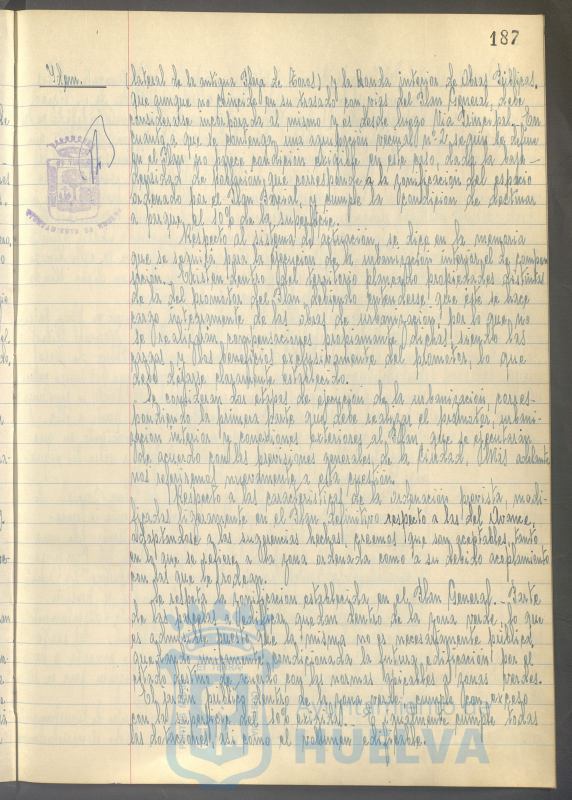 187
Idem.
lateral de la antigua Plaza de Toros) y la Ronda interior de Obras Públicas,
que aunque no coincide en su trazado con vias del Plan General, debe
considerarse incorporada al mismo y es desde luego Via Principal. En
cuanto a que se contenga una agrupación vecinal nº 2, según se define
en el Plan no parece condición exigible en este caso, dada la baja
densidad de población que corresponde a la zonificación del espacio
ordenado por el Plan Parcial, y cumple la condición de destinar
a parque el 10% de la superficie.
Respecto al sistema de actuación, se dice en la memoria
que se seguirá para la ejecución de la urbanización interior el de compen
sación. Existen dentro del territorio planeado propiedades distintas
de la del promotor del Plan, debiendo entenderse que éste se hace
cargo integramente de las obras de urbanización, por lo que no
se realizarán compensaciones propiamente dichas, siendo las
cargas y los beneficios exclusivamente del promotor, lo que
debe dejarse claramente establecido.
Se consideran dos etapas de ejecución de la urbanización, corres-
pondiendo la primera parte que debe realizar el promotor, urbani-
zación interior y conexiones exteriores al Plan que se ejecutarán
de acuerdo con las previsiones generales de la Ciudad. Más adelante
nos referiremos nuevamente a esta cuestión.
Respecto a las características de la ordenación prevista, modi-
ficadas ligeramente en el Plan definitivo respecto a las del Avance,
adaptándose a las sugerencias hechas, creemos que son aceptables, tanto
en lo que se refiere a la zona ordenada como a su debido acoplamiento
con las que la rodean.
Se respeta la zonificación establecida en el Plan General. Parte
de las parcelas a edificar quedan dentro de la zona verde, lo que
es admisible puesto que la misma no es necesariamente pública
quedando unicamente condicionada la futura edificación por el
citado destino de acuerdo con las normas aplicables a zonas verdes.
El jardín público dentro de la zona verde cumple con exceso
con la superficie del 10% exigida. E igualmente cumple todas
las dotaciones así como el volumen edificable.
AYUNTAMIENTO DE HUELVA
HUELVA